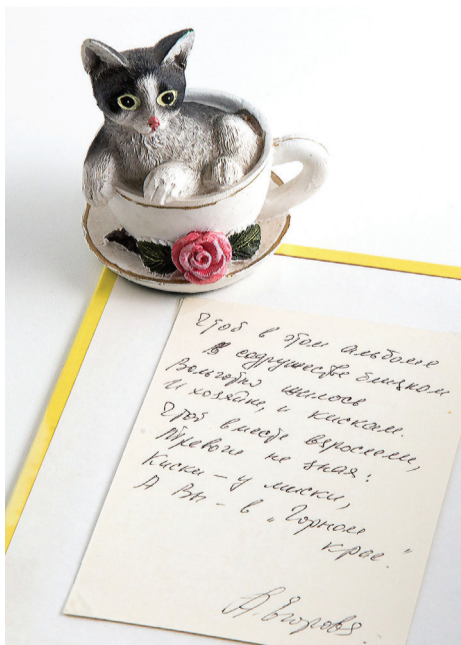 Чтоб в этом альбоме
В содружестве близком
Вольготно жилось
И хозяйке, и кискам.
Чтоб вместе взрослели,
Тревоги не зная:
Киски – у миски,
А Вы – в „Горном
крае."
А. Егорова.